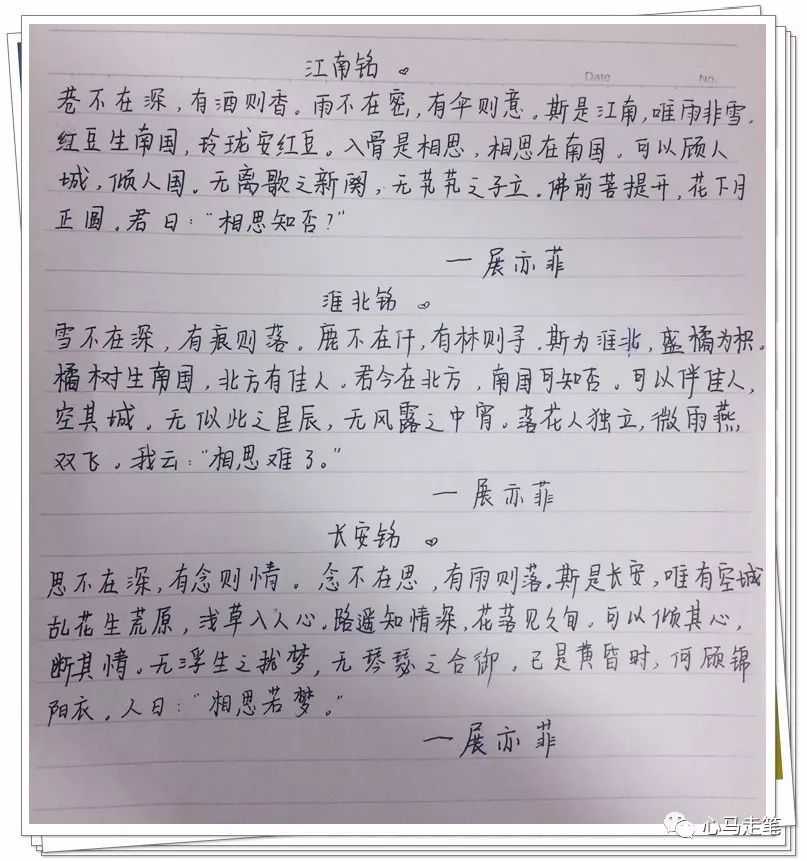 江南铭
Date No.
巷不在深，有酒则香。雨不在密，有伞则意。斯是江南，唯雨非雪。
红豆生南国，玲珑安红豆。入骨是相思，相思在南国。可以顾人
城，倾人国。无离歌之新阕，无茕茕之孑立。佛前菩提开，花下月
正圆。君曰：“相思知否？”
一展亦菲
淮北铭
雪不在深，有痕则落。鹿不在仟，有林则寻。斯为淮北，盛橘为枳。
橘树生南国，北方有佳人。君今在北方，南国可知否。可以伴佳人，
空其城。无似此之星辰，无风露之中宵。落花人独立，微雨燕
双飞。我云：“相思难了。”
一展亦菲
长安铭
思不在深，有念则情。念不在思，有雨则落。斯是长安，唯有空城
乱花生荒原，浅草入人心。路遥知情深，花落见久旬。可以倾其心，
断其情。无浮生之扰梦，无琴瑟之合御。已是黄昏时，何顾锦
阳衣。人曰：“相思若梦。”
一展亦菲
心马走笔